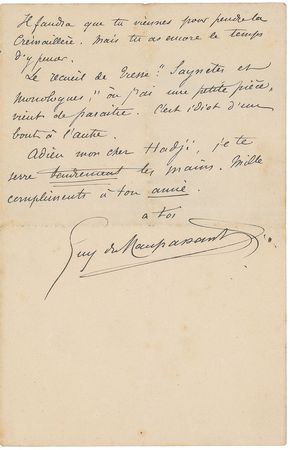 Il faudra que tu viennes pour pendre la
Crémaillère. Mais tu as encore le temps
d'y penser.
Le recueil de Tresse : "Saynètes et
monologues," où j'ai une petite pièce,
vient de paraître. C'est idiot d'un
bout à l'autre.
Adieu mon cher Hadji, je te
serre tendrement les mains. Mille
compliments à ton amie.
à toi
Guy de Maupassant